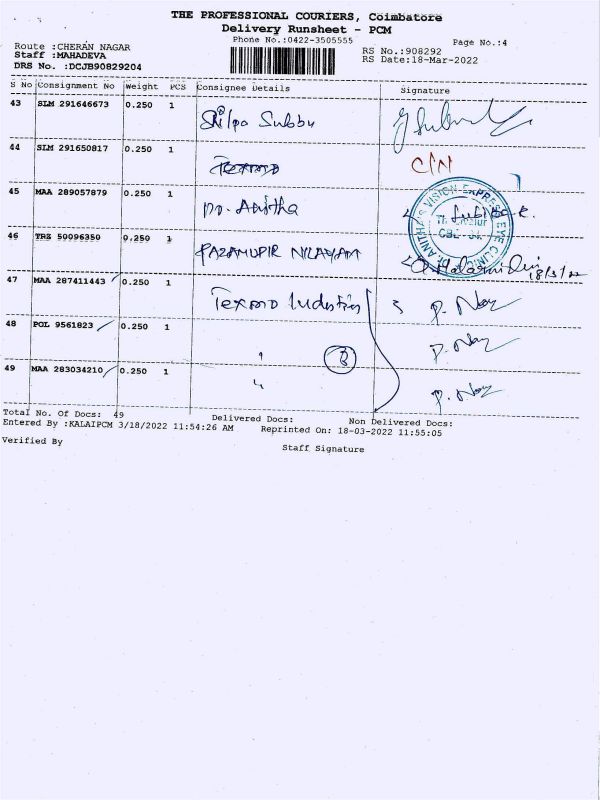 THE PROFESSIONAL COURIERS, Coimbatore
Delivery Runsheet - PCM
Phone No.:0422-3505555
Page No.:4
Route :CHERAN NAGAR
RS No.:908292
Staff :MAHADEVA
RS Date:18-Mar-2022
DRS No. :DCJB90829204
S No Consignment No Weight PCS Consignee Details Signature
43 SLM 291646673 0.250 1
Shilpa Subbu
44 SLM 291650817 0.250 1
Texmo C/N
45 MAA 289057879 0.250 1
Dr. Anitha
DR ANITHA'S VISION EXPRESS EYE CLINIC
46 TRZ 50096350 0.250 1
PAZAMUDIR NILAYAM
18/3/22
47 MAA 287411443 0.250 1
Texmo Industries
48 POL 9561823 0.250 1
3
49 MAA 283034210 0.250 1
Total No. Of Docs: 49 Delivered Docs: Non Delivered Docs:
Entered By :KALAIPCM 3/18/2022 11:54:26 AM Reprinted On: 18-03-2022 11:55:05
Verified By
Staff Signature